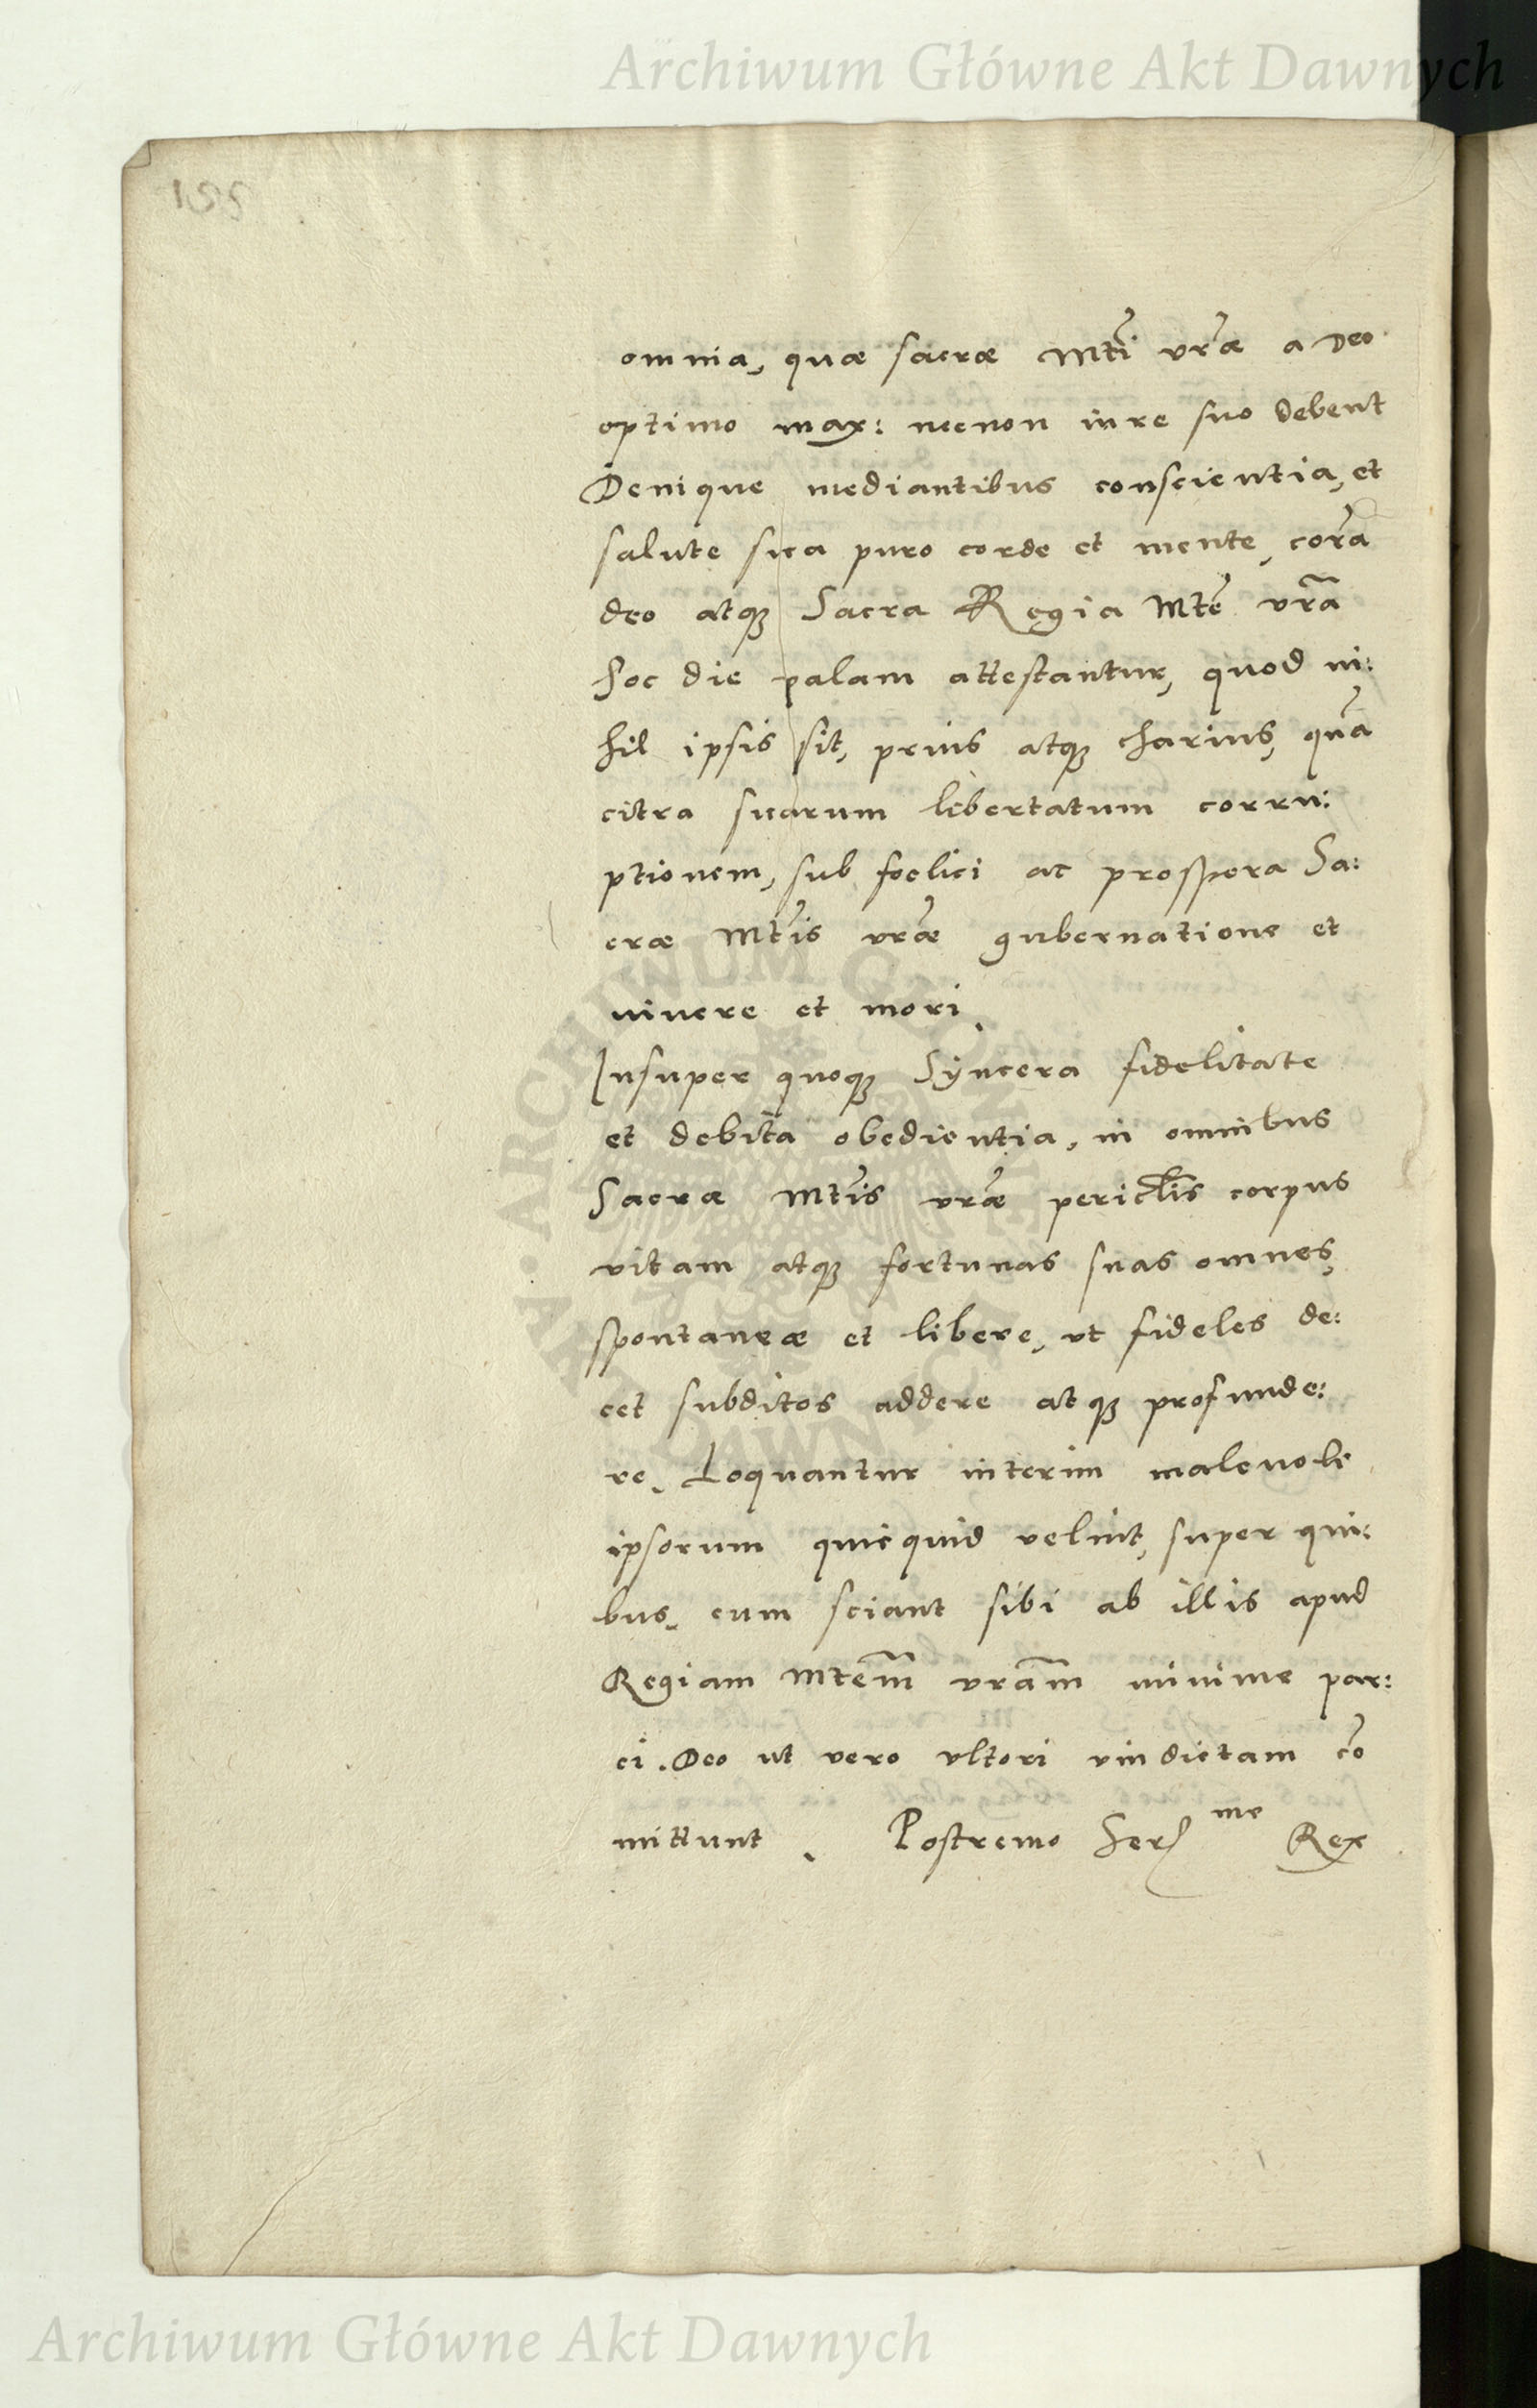 Archiwum Główne Akt Dawnych
155
omnia, quæ sacræ Mtĩ vr̃æ a Deo
optimo max: necnon iure suo debent
Denique mediantibus conscientia, et
salute sua puro corde et mente, corã
deo atq3 Sacra Regia Mtẽ vr̃a
hoc die palam attestantur, quod ni:
hil ipsis sit, prius atq3 charius, quã
citra suarum libertatum corru:
ptionem, sub foelici ac prospera Sa:
cræ Mtĩs vr̃æ gubernatione et
vivere et mori.
Insuper quoq3 Syncera fidelitate
et debita obedientia, in omnibus
Sacræ Mtĩs vr̃æ pericl̃is corpus
vitam atq3 fortunas suas omnes,
spontaneæ et libere, ut fideles de:
cet subditos addere atq3 profunde:
re. Loquantur interim malevoli
ipsorum quicquid velint, super qui:
bus, cum sciant sibi ab illis apud
Regiam Mtem̃ vram̃ minime par:
ci. Deo ut vero ultori vindictam cõ
mittunt. Postremo Ser me Rex
ARCHIWUM GŁÓWNE AKT DAWNYCH
Archiwum Główne Akt Dawnych